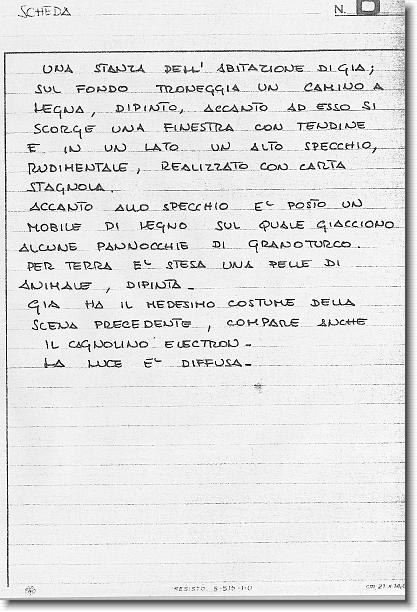 SCHEDA
N. 6
UNA STANZA DELL' ABITAZIONE DI GIA;
SUL FONDO TRONEGGIA UN CAMINO A
LEGNA, DIPINTO, ACCANTO AD ESSO SI
SCORGE UNA FINESTRA CON TENDINE
E IN UN LATO UN ALTO SPECCHIO,
RUDIMENTALE, REALIZZATO CON CARTA
STAGNOLA.
ACCANTO ALLO SPECCHIO E' POSTO UN
MOBILE DI LEGNO SUL QUALE GIACCIONO
ALCUNE PANNOCCHIE DI GRANOTURCO.
PER TERRA E' STESA UNA PELLE DI
ANIMALE, DIPINTA-
GIA HA IL MEDESIMO COSTUME DELLA
SCENA PRECEDENTE, COMPARE ANCHE
IL CAGNOLINO ELECTRON-
LA LUCE E' DIFFUSA-
RESISTO 5-515-1-U
cm 21 x